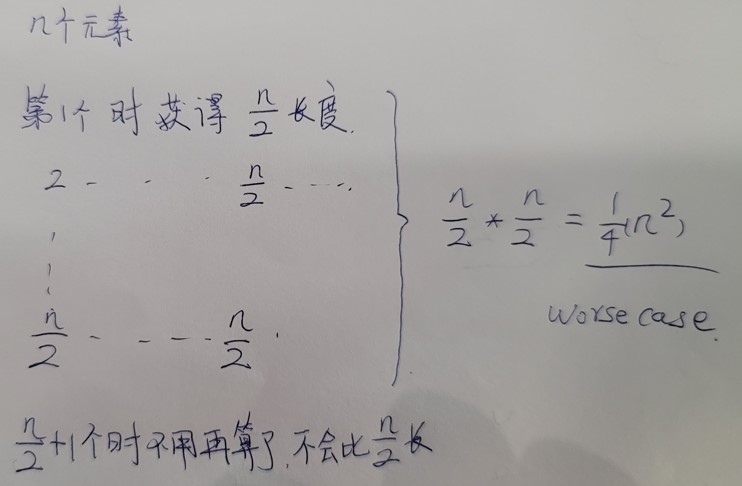 n个元素
第1个时获得 n/2 长度.
2 - - · n/2 - ····
n/2 - - --- n/2 ·
n/2 * n/2 = 1/4(n²)
worse case.
n/2+1个时不用再算了,不会比n/2长